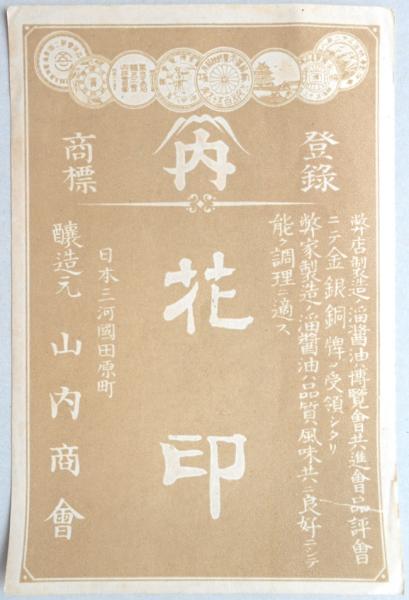 登録
商標
内
花印
弊店製造ノ溜醬油ハ博覽會共進會品評會
ニテ金銀銅牌ヲ受領シタリ
弊家製造ノ溜醬油ハ品質風味共ニ良好ニシテ
能ク調理ニ適ス
日本三河國田原町
釀造元 山内商會